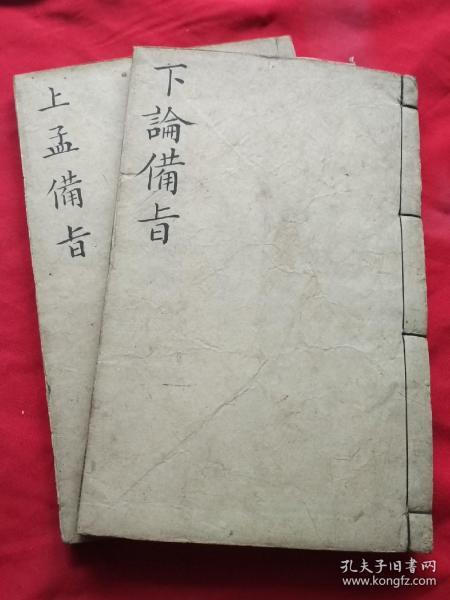 下論備旨
上孟備旨
孔夫子旧书网
www.kongfz.com